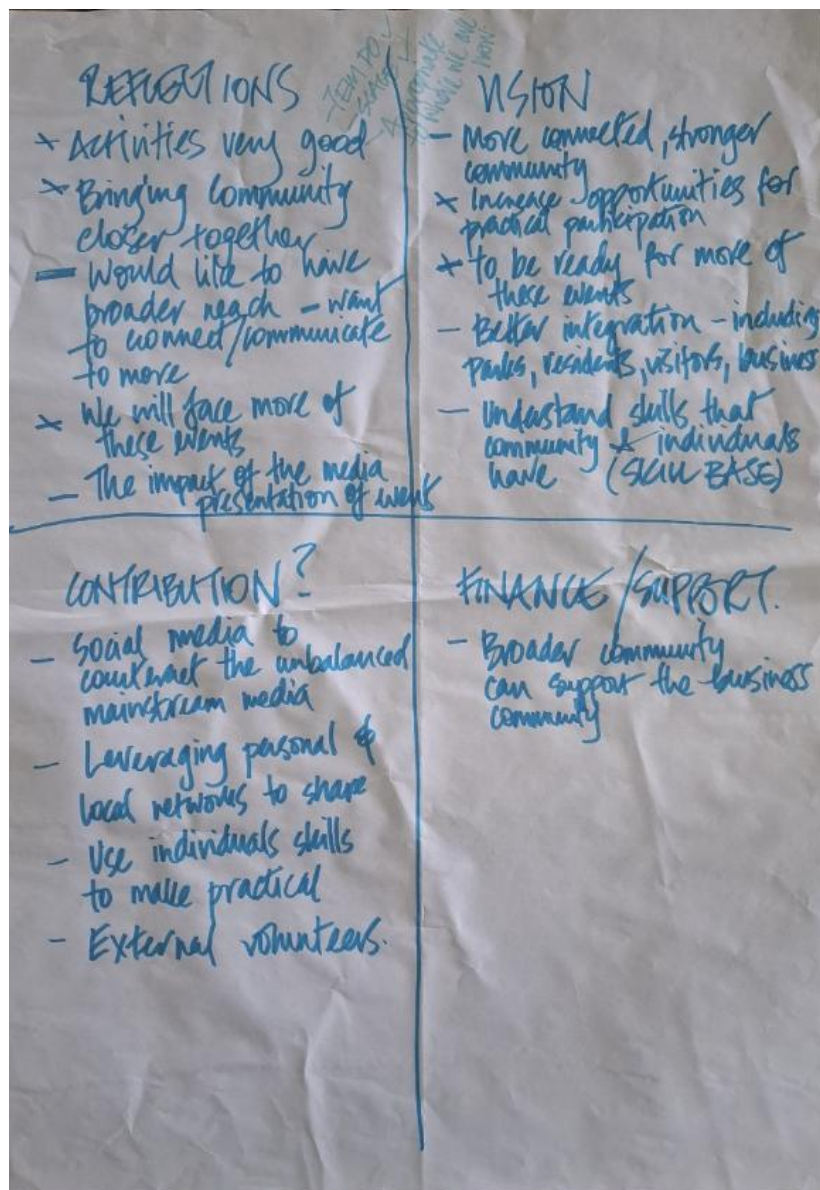 REFLECTIONS
x Activities very good
x Bringing Community
closer together
- Would like to have
broader reach - want
to connect/communicate
to more
x We will face more of
these events
- The impact of the media
presentation of event
TEMPO ✓
SCALE ✓
VISION
- More connected, stronger
community
x Increase opportunities for
practical participation
x to be ready for more of
these events
- Better integration - including
Parks, residents, visitors, business
- Understand skills that
community & individuals
have (SKILL BASE)
CONTRIBUTION?
- Social media to
counteract the unbalanced
mainstream media
- Leveraging personal &
local networks to share
- Use individuals skills
to make practical
- External volunteers.
FINANCE/SUPPORT.
- Broader community
can support the business
community